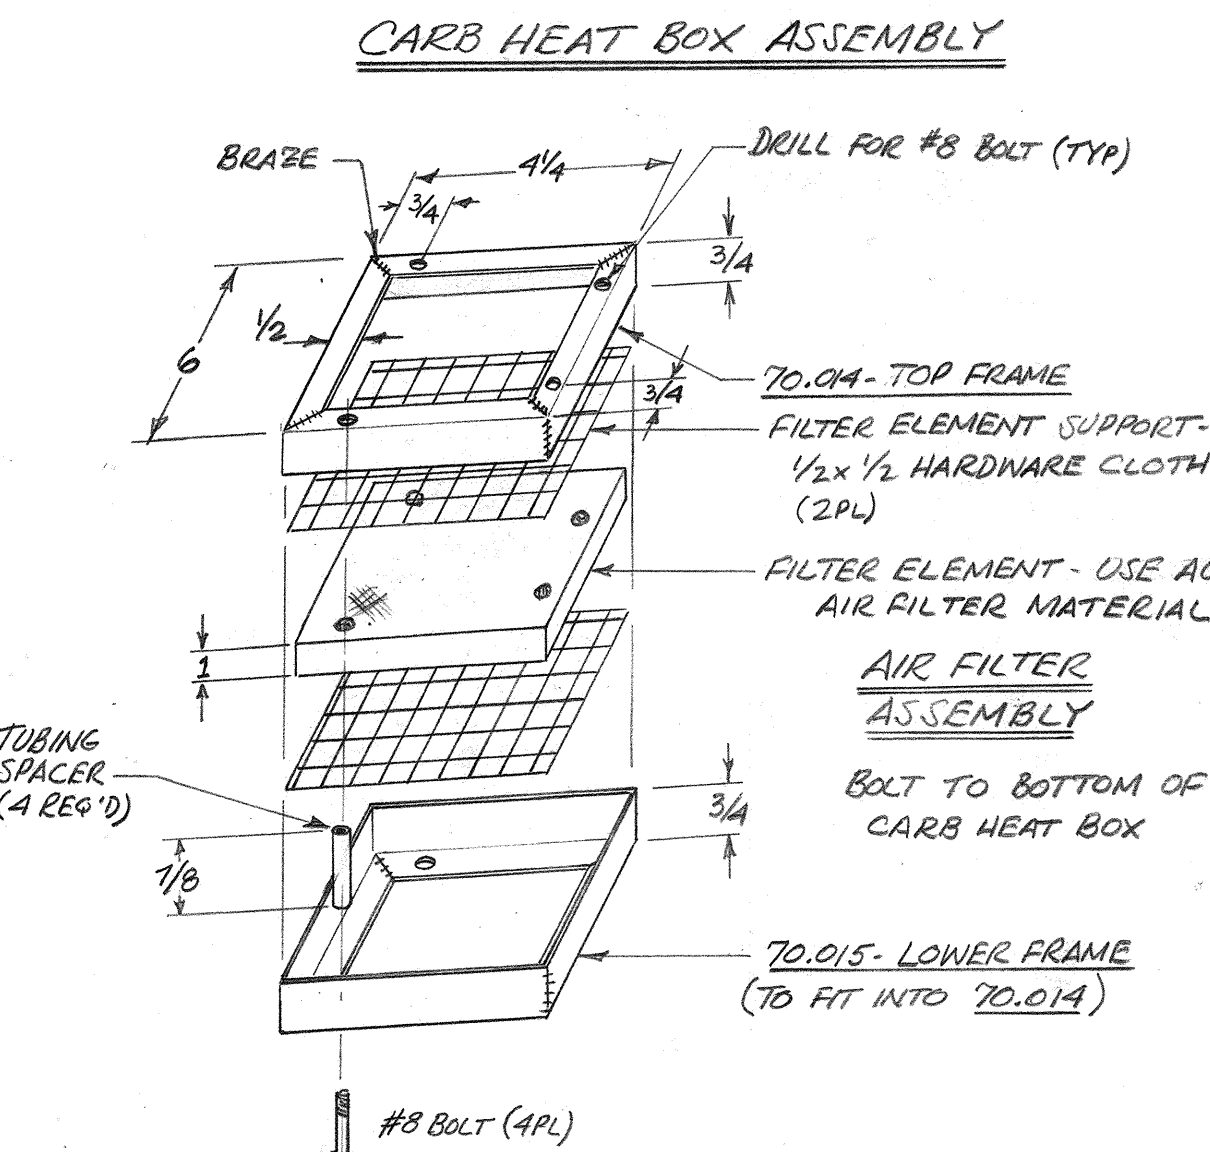 CARB HEAT BOX ASSEMBLY
BRAZE
4 1/4
DRILL FOR #8 BOLT (TYP)
3/4
3/4
6
1/2
3/4
70.014 - TOP FRAME
FILTER ELEMENT SUPPORT-
1/2 x 1/2 HARDWARE CLOTH
(2PL)
FILTER ELEMENT - USE
AIR FILTER MATERIAL
1
AIR FILTER
ASSEMBLY
TUBING
SPACER
(4 REQ'D)
3/4
BOLT TO BOTTOM OF
CARB HEAT BOX
7/8
70.015 - LOWER FRAME
(TO FIT INTO 70.014)
#8 BOLT (4PL)